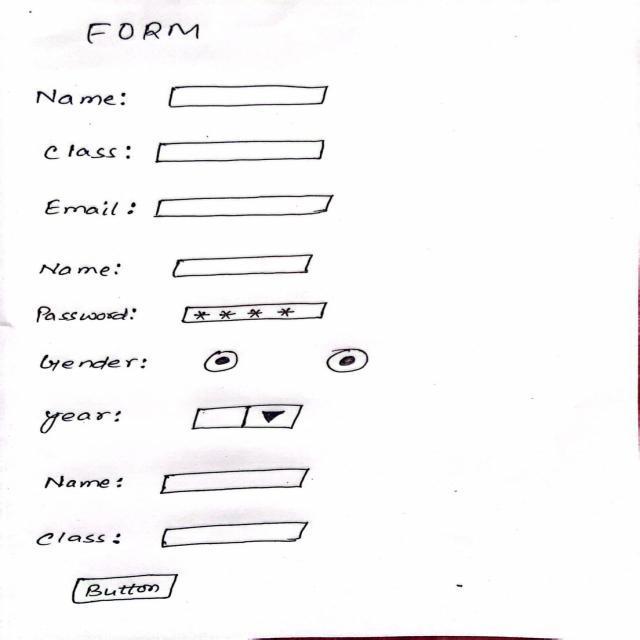 FORM
Name:
Class:
Email:
Name:
Password: ****
Gender:
year:
Name:
Class:
Button